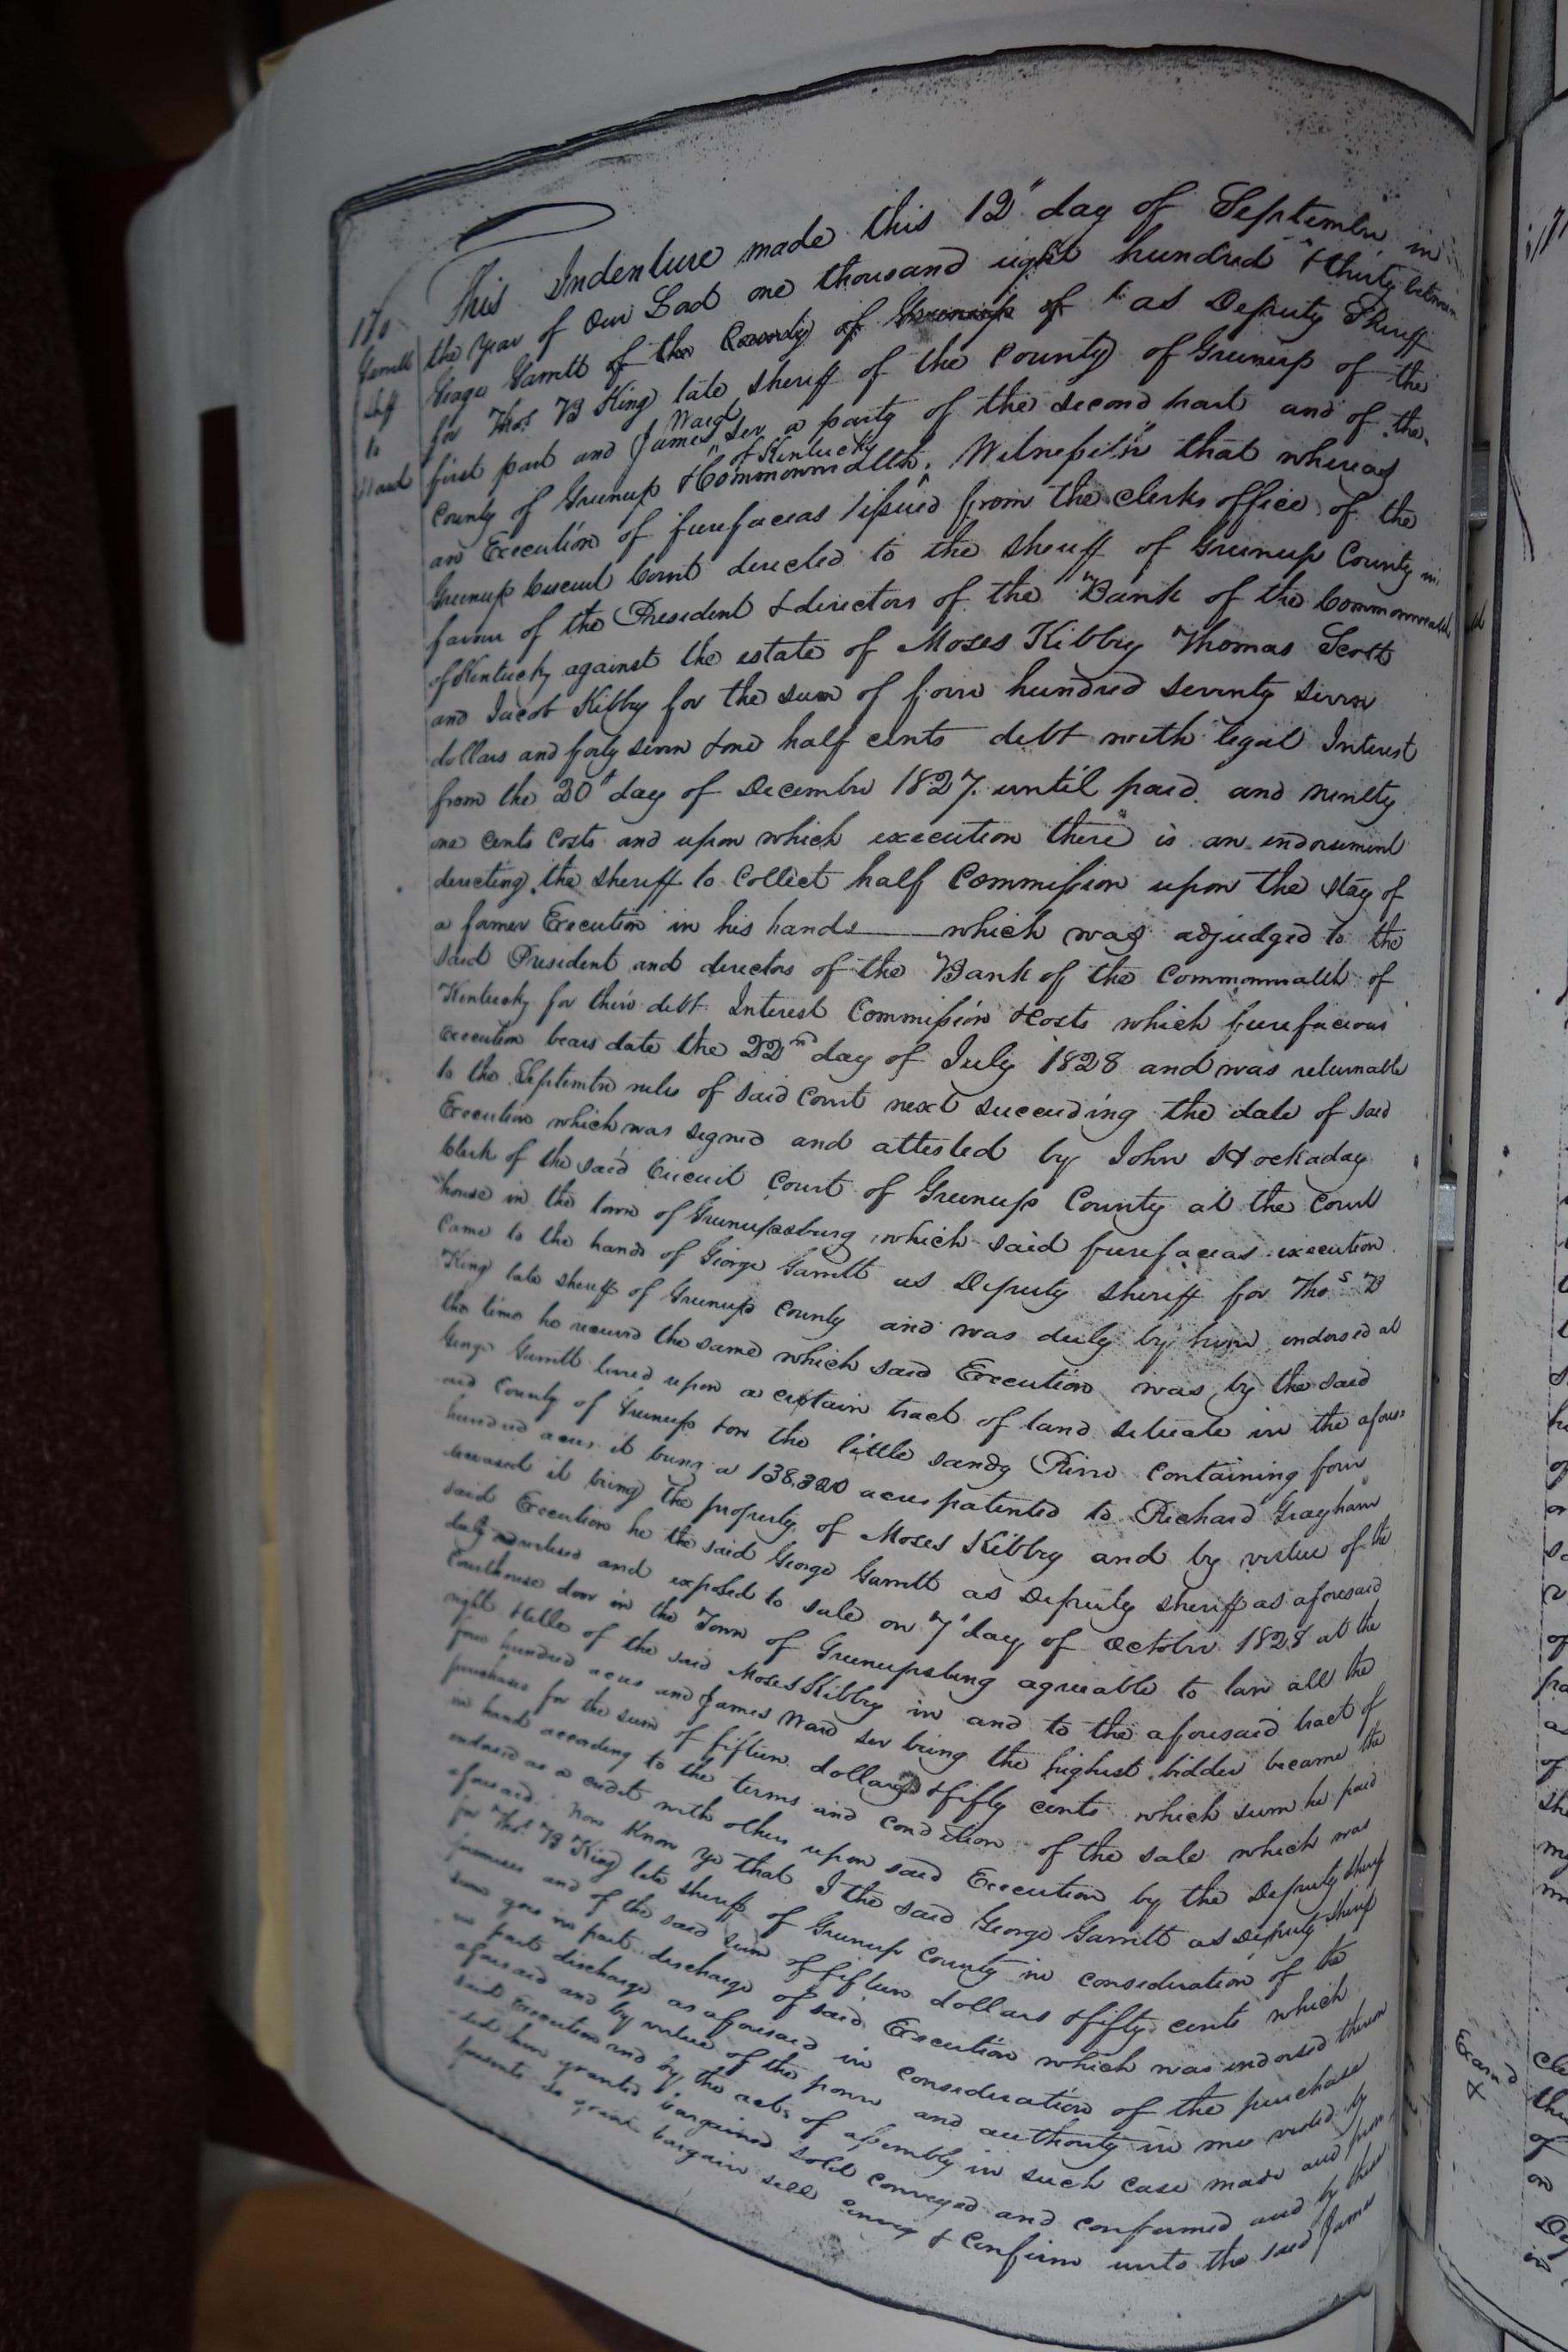 This Indenture made this 12" day of September in
the Year of Our Lord one thousand eight hundred & thirty between
George Garrett of the County of Greenup of as Deputy Sheriff
for Thos. B King late sheriff of the County of Greenup of the
first part and James Ward Ser a party of the second part and of the
County of Greenup & Commonwealth of Kentucky, Witnesseth that whereas
an Execution of furefacias issued from the clerks office of the
Greenup Circuit Court directed to the sheriff of Greenup County in
favour of the President & directors of the Bank of the Commonwealth
of Kentucky against the estate of Moses Kibby Thomas Scott
and Jacob Kibby for the sum of four hundred seventy seven
dollars and forty seven & one half cents debt with legal Interest
from the 20th day of December 1827 until paid. and ninety
one cents costs and upon which execution there is an indorsement
directing the sheriff to Collect half Commission upon the stay of
a former Execution in his hands — which was adjudged to the
said President and directors of the Bank of the Commonwealth of
Kentucky for their debt Interest Commission & Costs which furefacious
execution bears date the 22nd day of July 1828 and was returnable
to the September rules of said Court next succeeding the date of said
Execution which was signed and attested by John Hockaday
Clerk of the said Circuit Court of Greenup County at the Court
house in the town of Greenupsburg which said furefacias execution
Came to the hands of George Garrett as Deputy sheriff for Thos B
King late sheriff of Greenup County and was duly by him endorsed at
the time he received the same which said Execution was by the said
George Garrett levied upon a certain tract of land situate in the afore=
said County of Greenup & on the little sandy River Containing four
hundred acres it being a 138,320 acres patented to Richard Grayham
deceased it being the property of Moses Kibby and by virtue of the
said Execution he the said George Garrett as Deputy sheriff as aforesaid
duly advertised and exposed to sale on 7th day of October 1828 at the
Courthouse door in the Town of Greenupsburg agreeable to law all the
right & title of the said Moses Kibby in and to the aforesaid tract of
four hundred acres and James Ward Ser being the highest bidder became the
purchaser for the sum of fifteen dollars & fifty cents which sum he paid
in hand according to the terms and condition of the sale which was
indorsed as a credit with others upon said Execution by the Deputy sheriff
aforesaid. Now Know ye that I the said George Garrett as Deputy sheriff
for Thos. B King late sheriff of Greenup County in consideration of the
premises and of the said sum of fifteen dollars & fifty cents which
sum goes in part discharge of said Execution which was indorsed thereon
in part discharge as aforesaid in consideration of the purchase
aforesaid and by virtue of the power and authority in me vested by
said Execution and by the acts of assembly in such case made and
have granted bargained sold conveyed and confirmed and by these
presents do grant bargain sell convey & Confirm unto the said James
Garrett
Shff
to
Ward
Exam'd